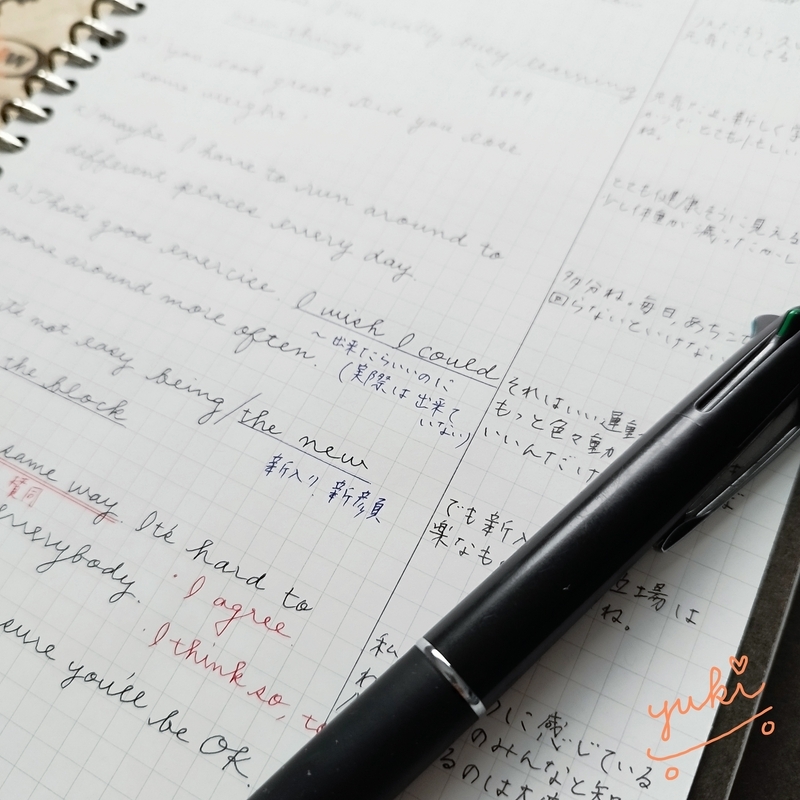 really busy learning
new things.
you look great. Did you lose
some weight?
maybe. I have to run around to
different places every day.
a) That's good exercise. I wish I could
move around more often.
～出来たらいいのに
(実際は出来て
いない)
It's not easy being/the new
the block
新入り、新顔
same way. It's hard to
賛同
everybody.
・I agree.
・I think so, to
sure you'll be OK.
とても健康そうに見える
少し体重が減ったかし
多分ね。毎日、あちこち
回らないといけない
それはいい運動
もっと色々動
いいんだけ
でも新入
楽なも
立場は
ね。
私
わ
に感じている
のみんなと知
るのは大
yuki